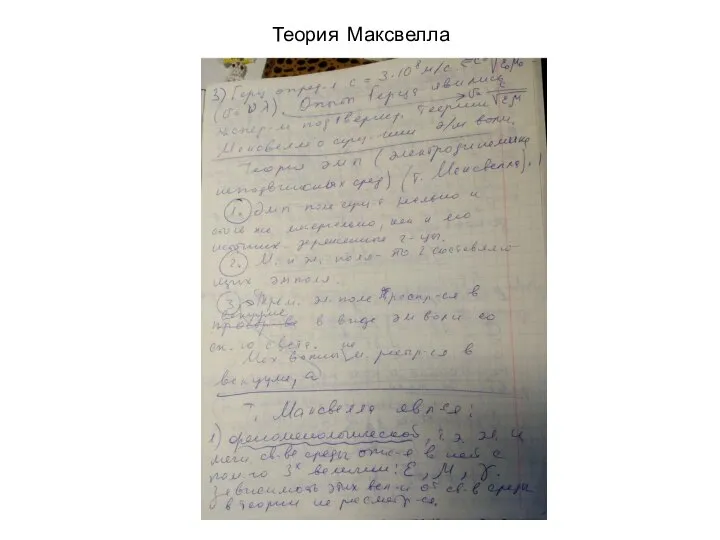 Теория Максвелла
3) Герц опред-л c = 3·10⁸ м/с
(υ=νλ). Опыт Герца явились
экспер-м подтвержд. теории
Максвелла о сущ-нии э/м волн.
Теория ЭМП (электродинамика
неподвижных сред) (т. Максвелла).
1. ЭМП поле сущ-т реально и
столь же материально, как и его
источник - заряженные ч-цы.
2. М. и эл. поля - это 2 составляю-
щих эм поля.
3. Перем. эм поле распр-ся в
вакууме в виде эм волн со
ск-ю света.
Мех волны не распр-ся в
вакууме, а
Т. Максвелла явл-ся:
1) феноменологической, т.э. эл. и
магн св-ва среды отр-я в ней с
пом-ю 3х величин: ε, μ, γ.
Зависимость этих вел-н от св-в среды
в теории не рассматр-ся.